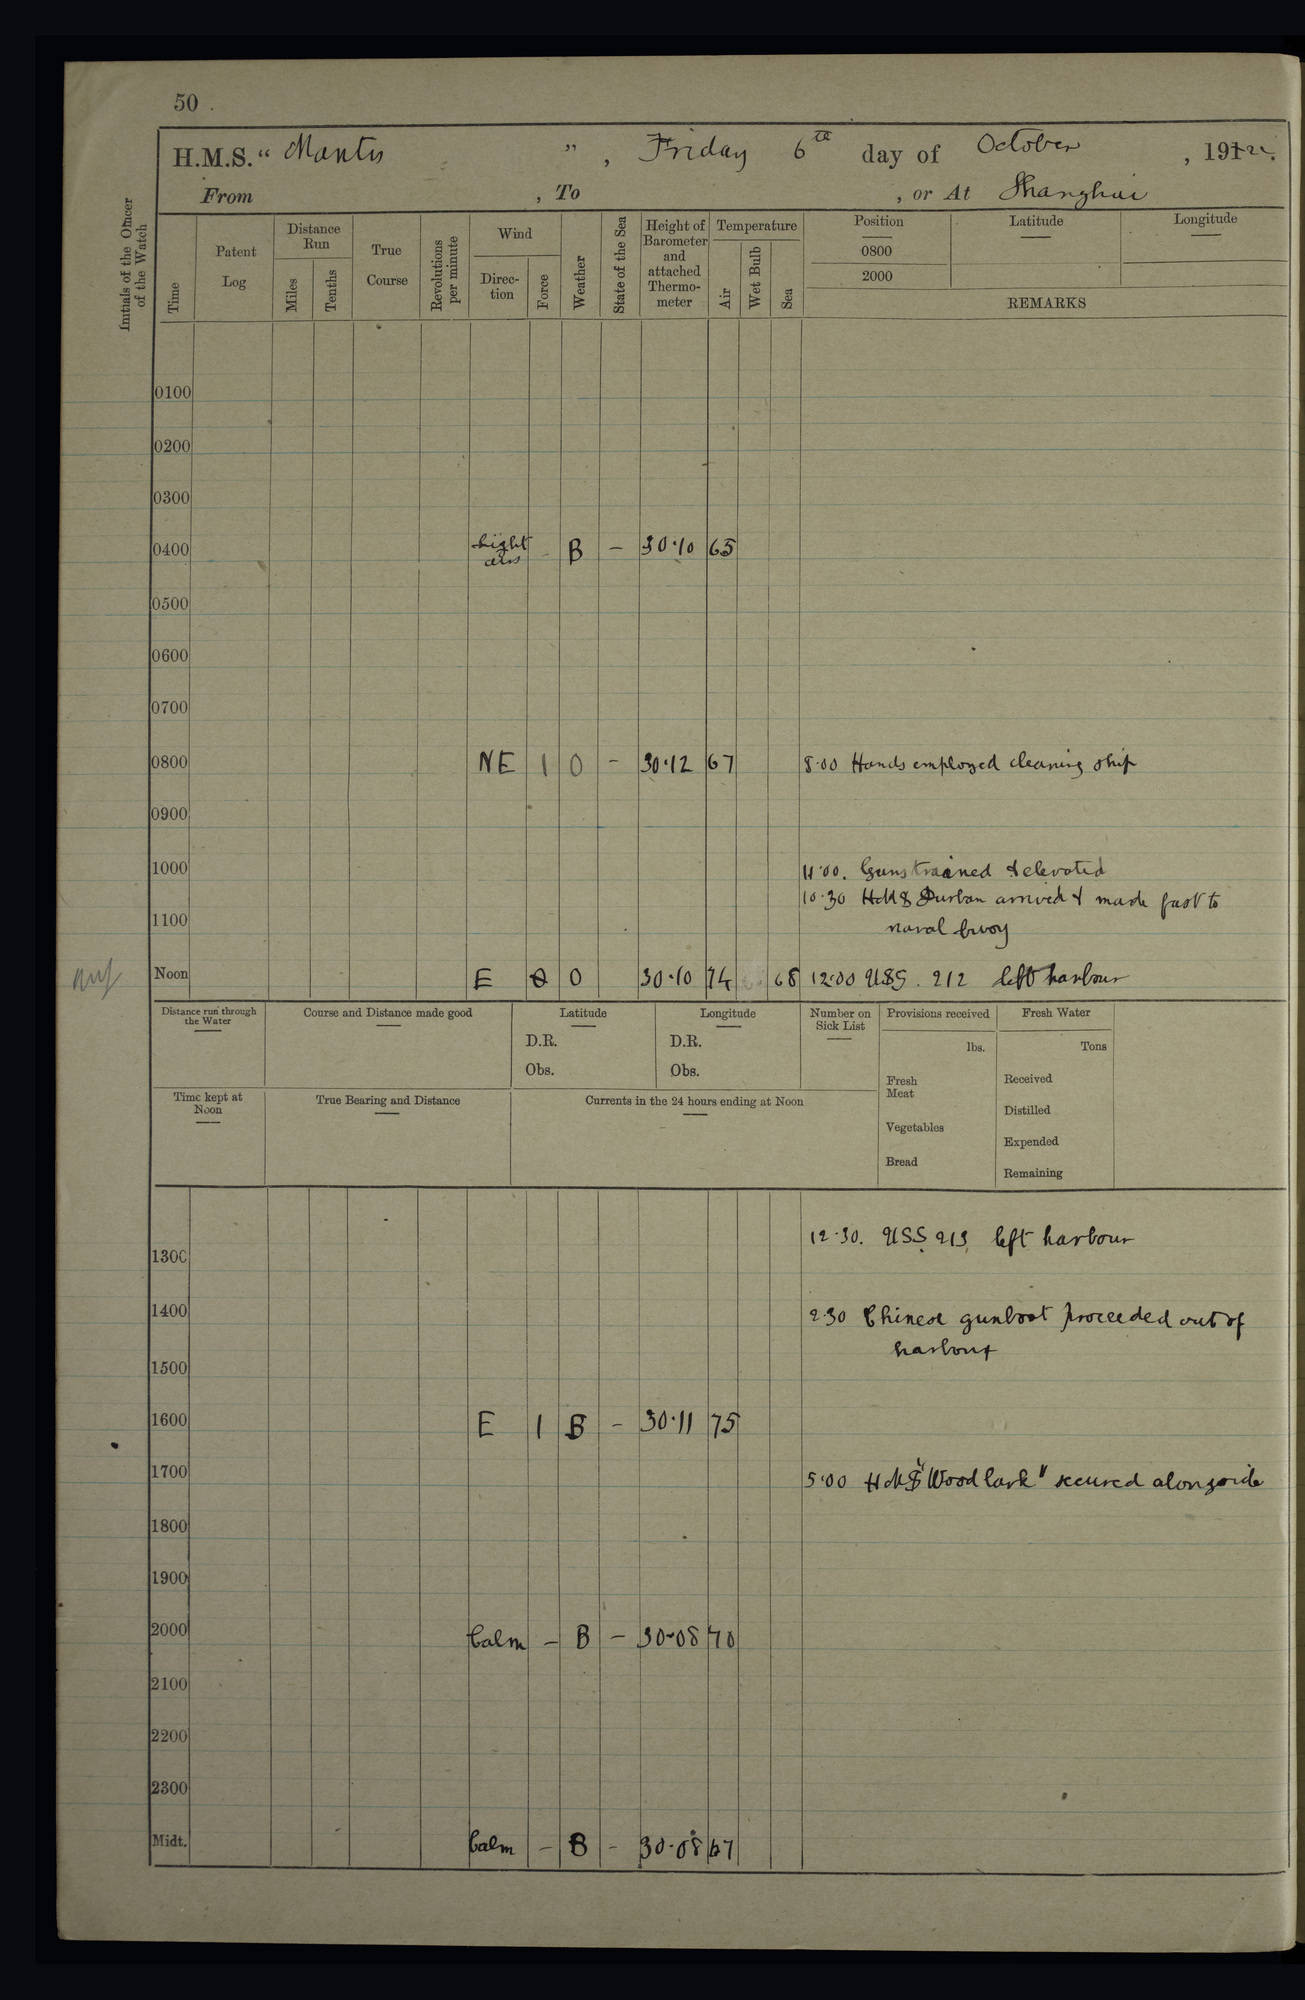 50
H.M.S. "Mantis", Friday 6th day of October, 1922.
From , To , or At Shanghai
Initials of the Officer of the Watch
Time
Patent Log
Distance Run
Miles
Tenths
True Course
Revolutions per minute
Wind
Direc-tion
Force
Weather
State of the Sea
Height of Barometer and attached Thermo-meter
Temperature
Air
Wet Bulb
Sea
Position
Latitude
Longitude
0800
2000
REMARKS
0100
0200
0300
0400 Light airs - B - 30.10 65
0500
0600
0700
0800 NE 1 O - 30.12 67 8.00 Hands employed cleaning ship
0900
1000 11.00. Guns trained & elevated
10.30 H.M.S Durban arrived & made fast to
1100 naval buoy
Noon E 0 O 30.10 74 68 12.00 USS. 212 left harbour
Distance run through the Water
Course and Distance made good
Latitude
D.R.
Obs.
Longitude
D.R.
Obs.
Number on Sick List
Provisions received
lbs.
Fresh Meat
Vegetables
Bread
Fresh Water
Tons
Received
Distilled
Expended
Remaining
Time kept at Noon
True Bearing and Distance
Currents in the 24 hours ending at Noon
12.30. USS 213 left harbour
1300
1400 2.30 Chinese gunboat proceeded out of
harbour
1500
1600 E 1 B - 30.11 75
1700 5.00 HMS "Woodlark" secured alongside
1800
1900
2000 Calm - B - 30.08 70
2100
2200
2300
Midt. Calm - B - 30.08 67